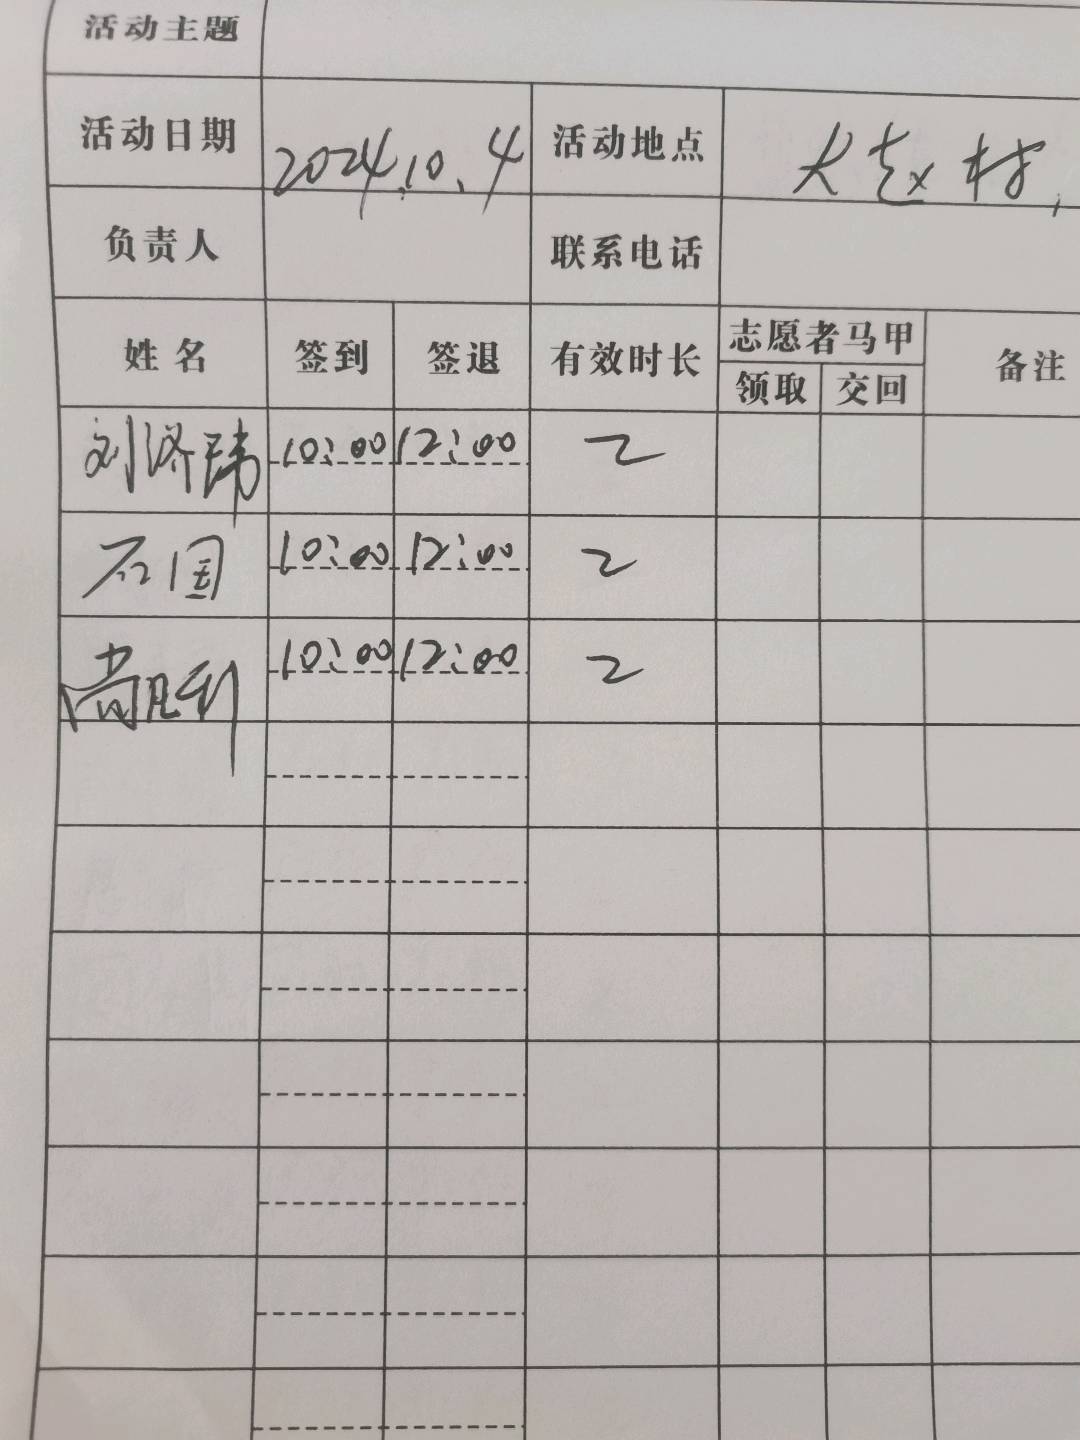 活动主题
活动日期 2024.10.4 活动地点 大赵村
负责人 联系电话
姓名 签到 签退 有效时长 志愿者马甲 备注
领取 交回
刘济玮 10:00 12:00 2
石国 10:00 12:00 2
尚胜利 10:00 12:00 2